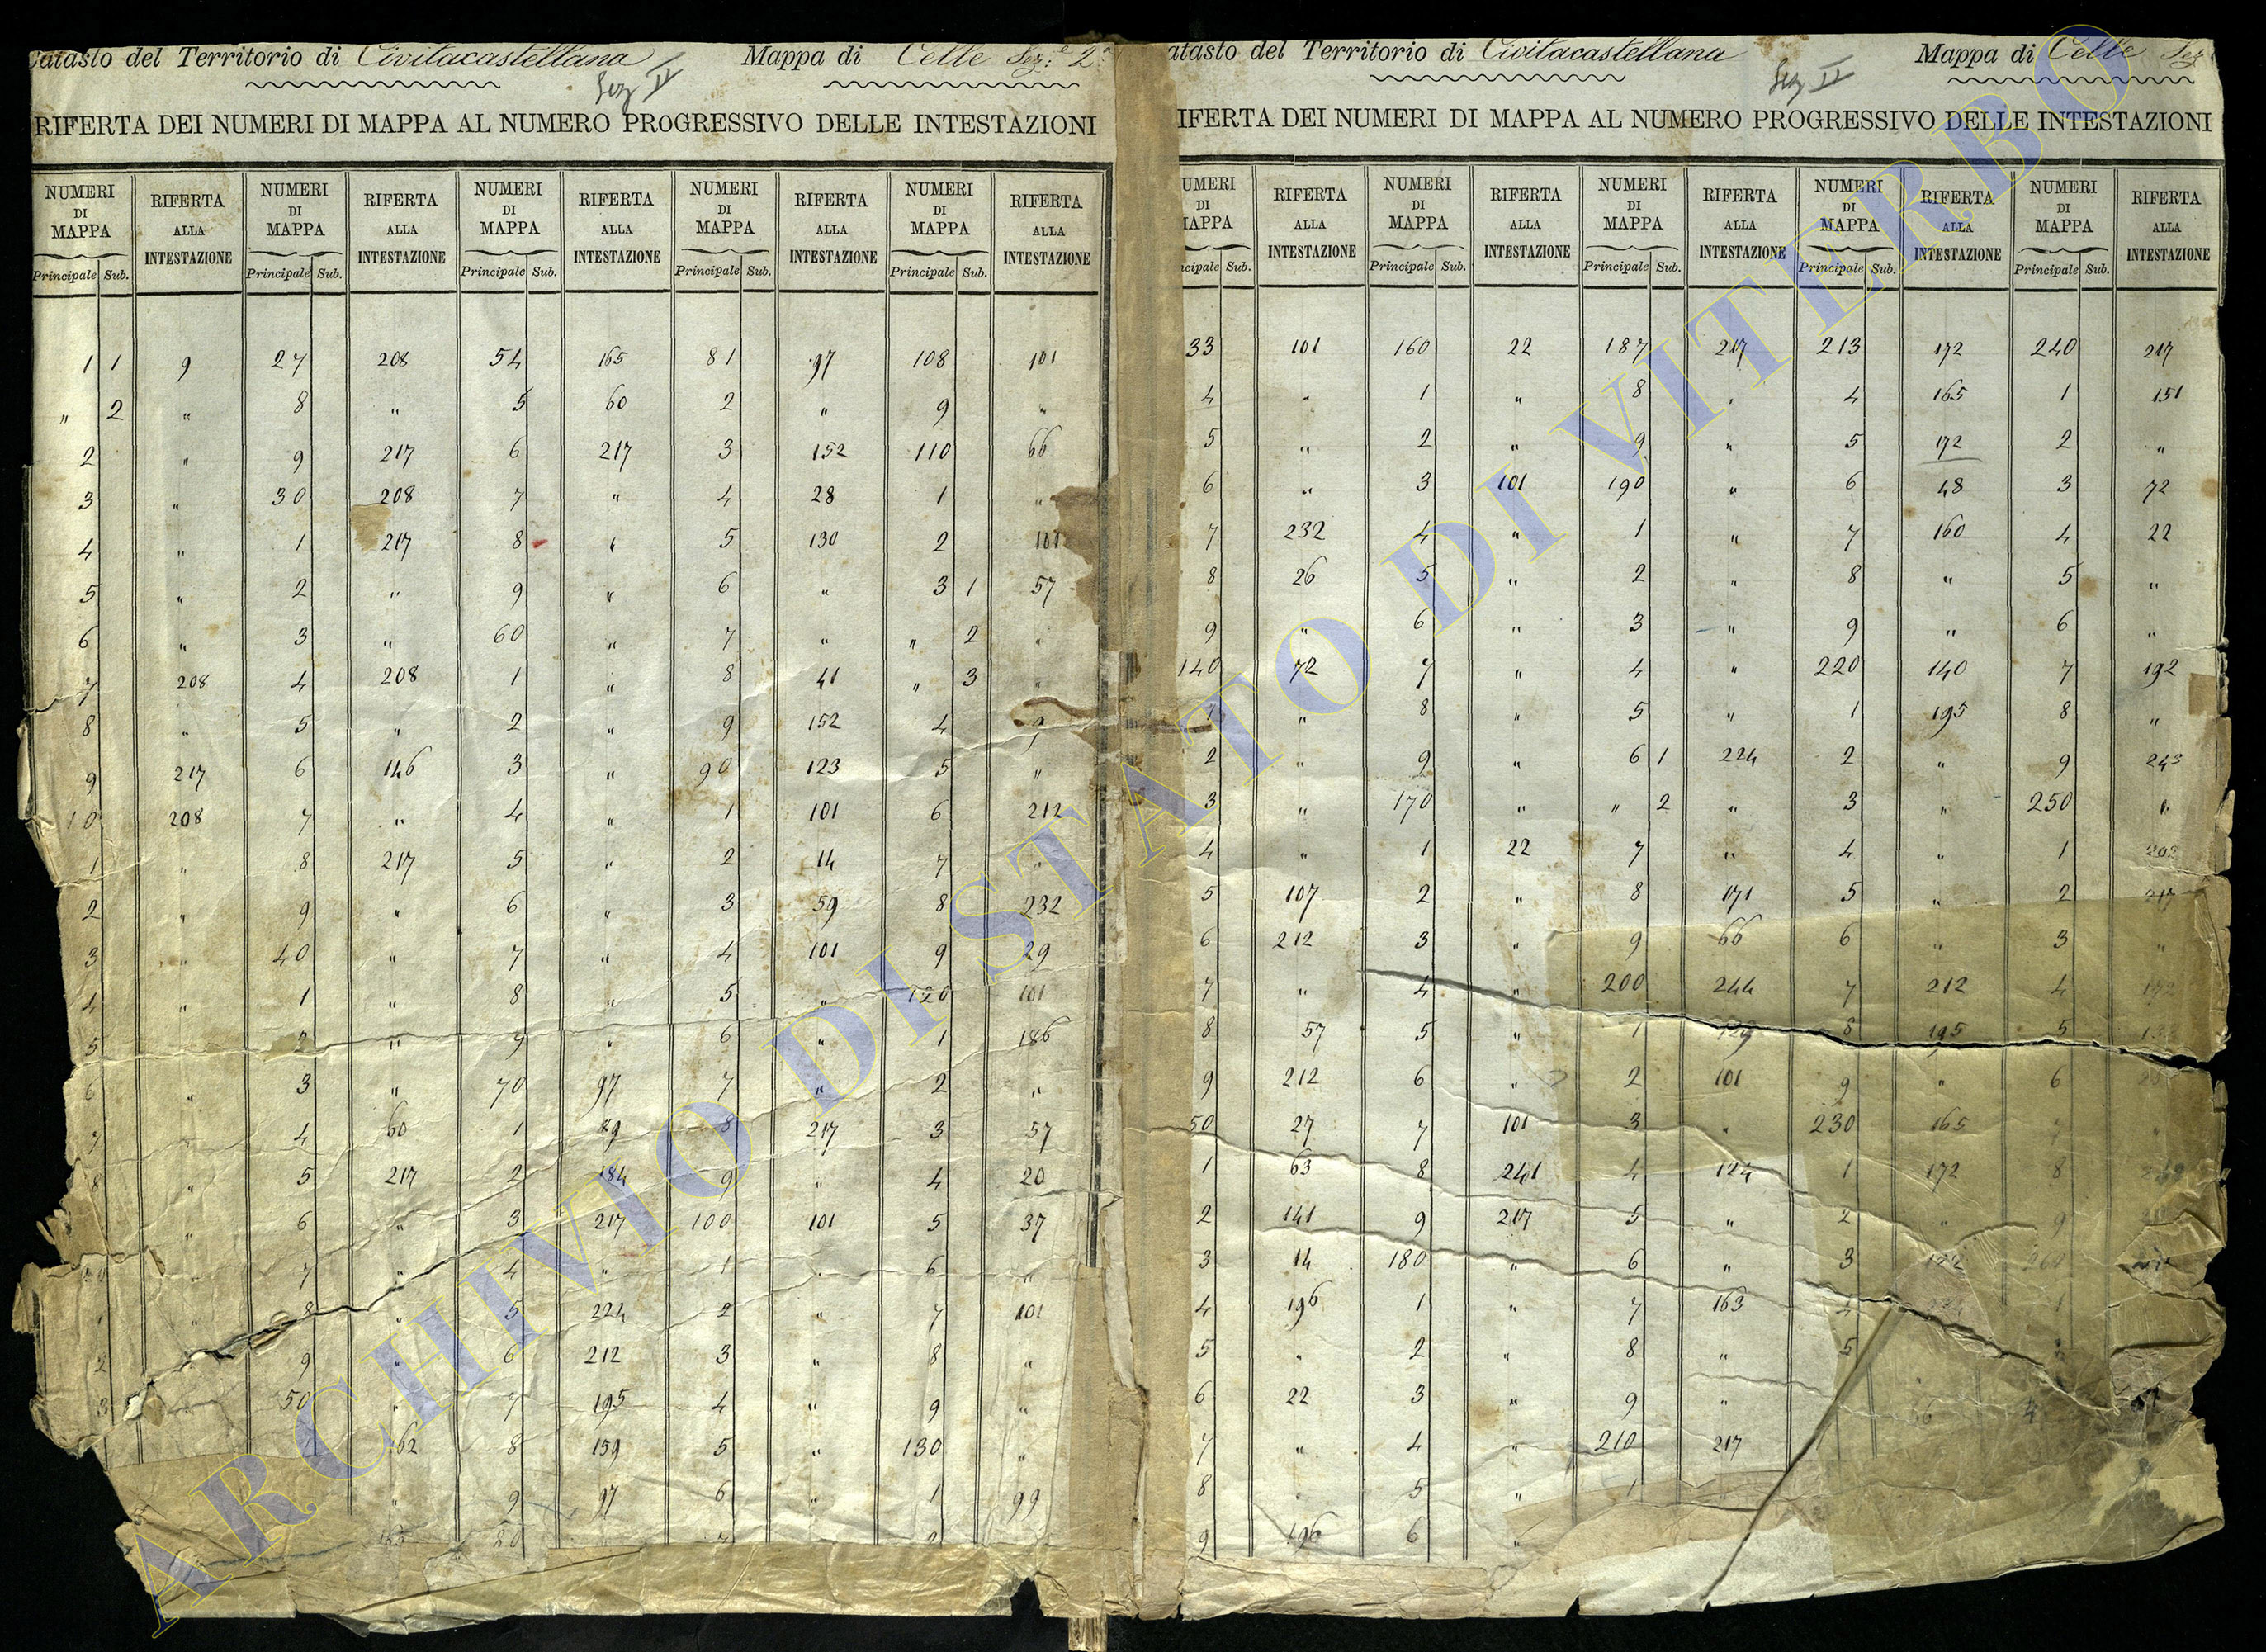 Catasto del Territorio di Civitacastellana Mappa di Celle Sez:e 2a
Sez II
RIFERTA DEI NUMERI DI MAPPA AL NUMERO PROGRESSIVO DELLE INTESTAZIONI
NUMERI DI MAPPA RIFERTA ALLA INTESTAZIONE NUMERI DI MAPPA RIFERTA ALLA INTESTAZIONE NUMERI DI MAPPA RIFERTA ALLA INTESTAZIONE NUMERI DI MAPPA RIFERTA ALLA INTESTAZIONE NUMERI DI MAPPA RIFERTA ALLA INTESTAZIONE
Principale Sub. Principale Sub. Principale Sub. Principale Sub. Principale Sub.
1 1 9 27 208 54 165 81 97 108 101
„ 2 „ 8 „ 5 60 2 „ 9 „
2 „ 9 217 6 217 3 152 110 66
3 „ 30 208 7 „ 4 28 1 „
4 „ 1 217 8 „ 5 130 2 101
5 „ 2 „ 9 „ 6 „ 3 1 57
6 „ 3 „ 60 „ 7 „ „ 2 „
7 208 4 208 1 „ 8 41 „ 3 „
8 „ 5 „ 2 „ 9 152 4 9
9 217 6 146 3 „ 90 123 5 „
10 208 7 „ 4 „ 1 101 6 212
1 „ 8 217 5 „ 2 14 7 „
2 „ 9 „ 6 „ 3 59 8 232
3 „ 40 „ 7 „ 4 101 9 29
4 „ 1 „ 8 „ 5 „ 120 101
5 2 „ 9 „ 6 „ 1 186
6 „ 3 „ 70 97 7 „ 2 „
7 4 60 1 89 8 217 3 57
8 „ 5 217 2 184 9 „ 4 20
„ 6 „ 3 217 100 101 5 37
„ 7 „ 4 „ 1 „ 6 „
„ 8 „ 5 224 2 „ 7 101
2 9 „ 6 212 3 „ 8 „
3 50 „ 7 195 4 „ 9 „
62 8 159 5 „ 130 „
„ 9 97 6 „ 1 99
80 7 2
atasto del Territorio di Civitacastellana Mappa di Celle Sez
Sez II
IFERTA DEI NUMERI DI MAPPA AL NUMERO PROGRESSIVO DELLE INTESTAZIONI
UMERI DI MAPPA RIFERTA ALLA INTESTAZIONE NUMERI DI MAPPA RIFERTA ALLA INTESTAZIONE NUMERI DI MAPPA RIFERTA ALLA INTESTAZIONE NUMERI DI MAPPA RIFERTA ALLA INTESTAZIONE NUMERI DI MAPPA RIFERTA ALLA INTESTAZIONE
ncipale Sub. Principale Sub. Principale Sub. Principale Sub. Principale Sub.
33 101 160 22 187 217 213 172 240 217
4 „ 1 „ 8 „ 4 165 1 151
5 „ 2 „ 9 „ 5 172 2 „
6 „ 3 101 190 „ 6 48 3 72
7 232 4 „ 1 „ 7 160 4 22
8 26 5 „ 2 „ 8 „ 5 „
9 „ 6 „ 3 „ 9 „ 6 „
140 72 7 „ 4 „ 220 140 7 192
1 „ 8 „ 5 „ 1 195 8 „
2 „ 9 „ 6 1 224 2 „ 9 243
3 „ 170 „ „ 2 „ 3 „ 250 „
4 „ 1 22 7 „ 4 „ 1
5 107 2 „ 8 171 5 „ 2 217
6 212 3 „ 9 66 6 „ 3 „
7 „ 4 „ 200 244 7 212 4
8 57 5 „ 1 129 8 195 5
9 212 6 „ 2 101 9 „ 6
50 27 7 101 3 „ 230 165 7
1 63 8 241 4 124 1 172 8
2 141 9 217 5 „ 2 „ 9
3 14 180 „ 6 „ 3 260
4 196 1 „ 7 163 4 1
5 „ 2 „ 8 „ 5
6 22 3 „ 9 „
7 „ 4 „ 210 217
8 „ 5 „ 1
9 196 6 „
ARCHIVIO DI STATO DI VITERBO